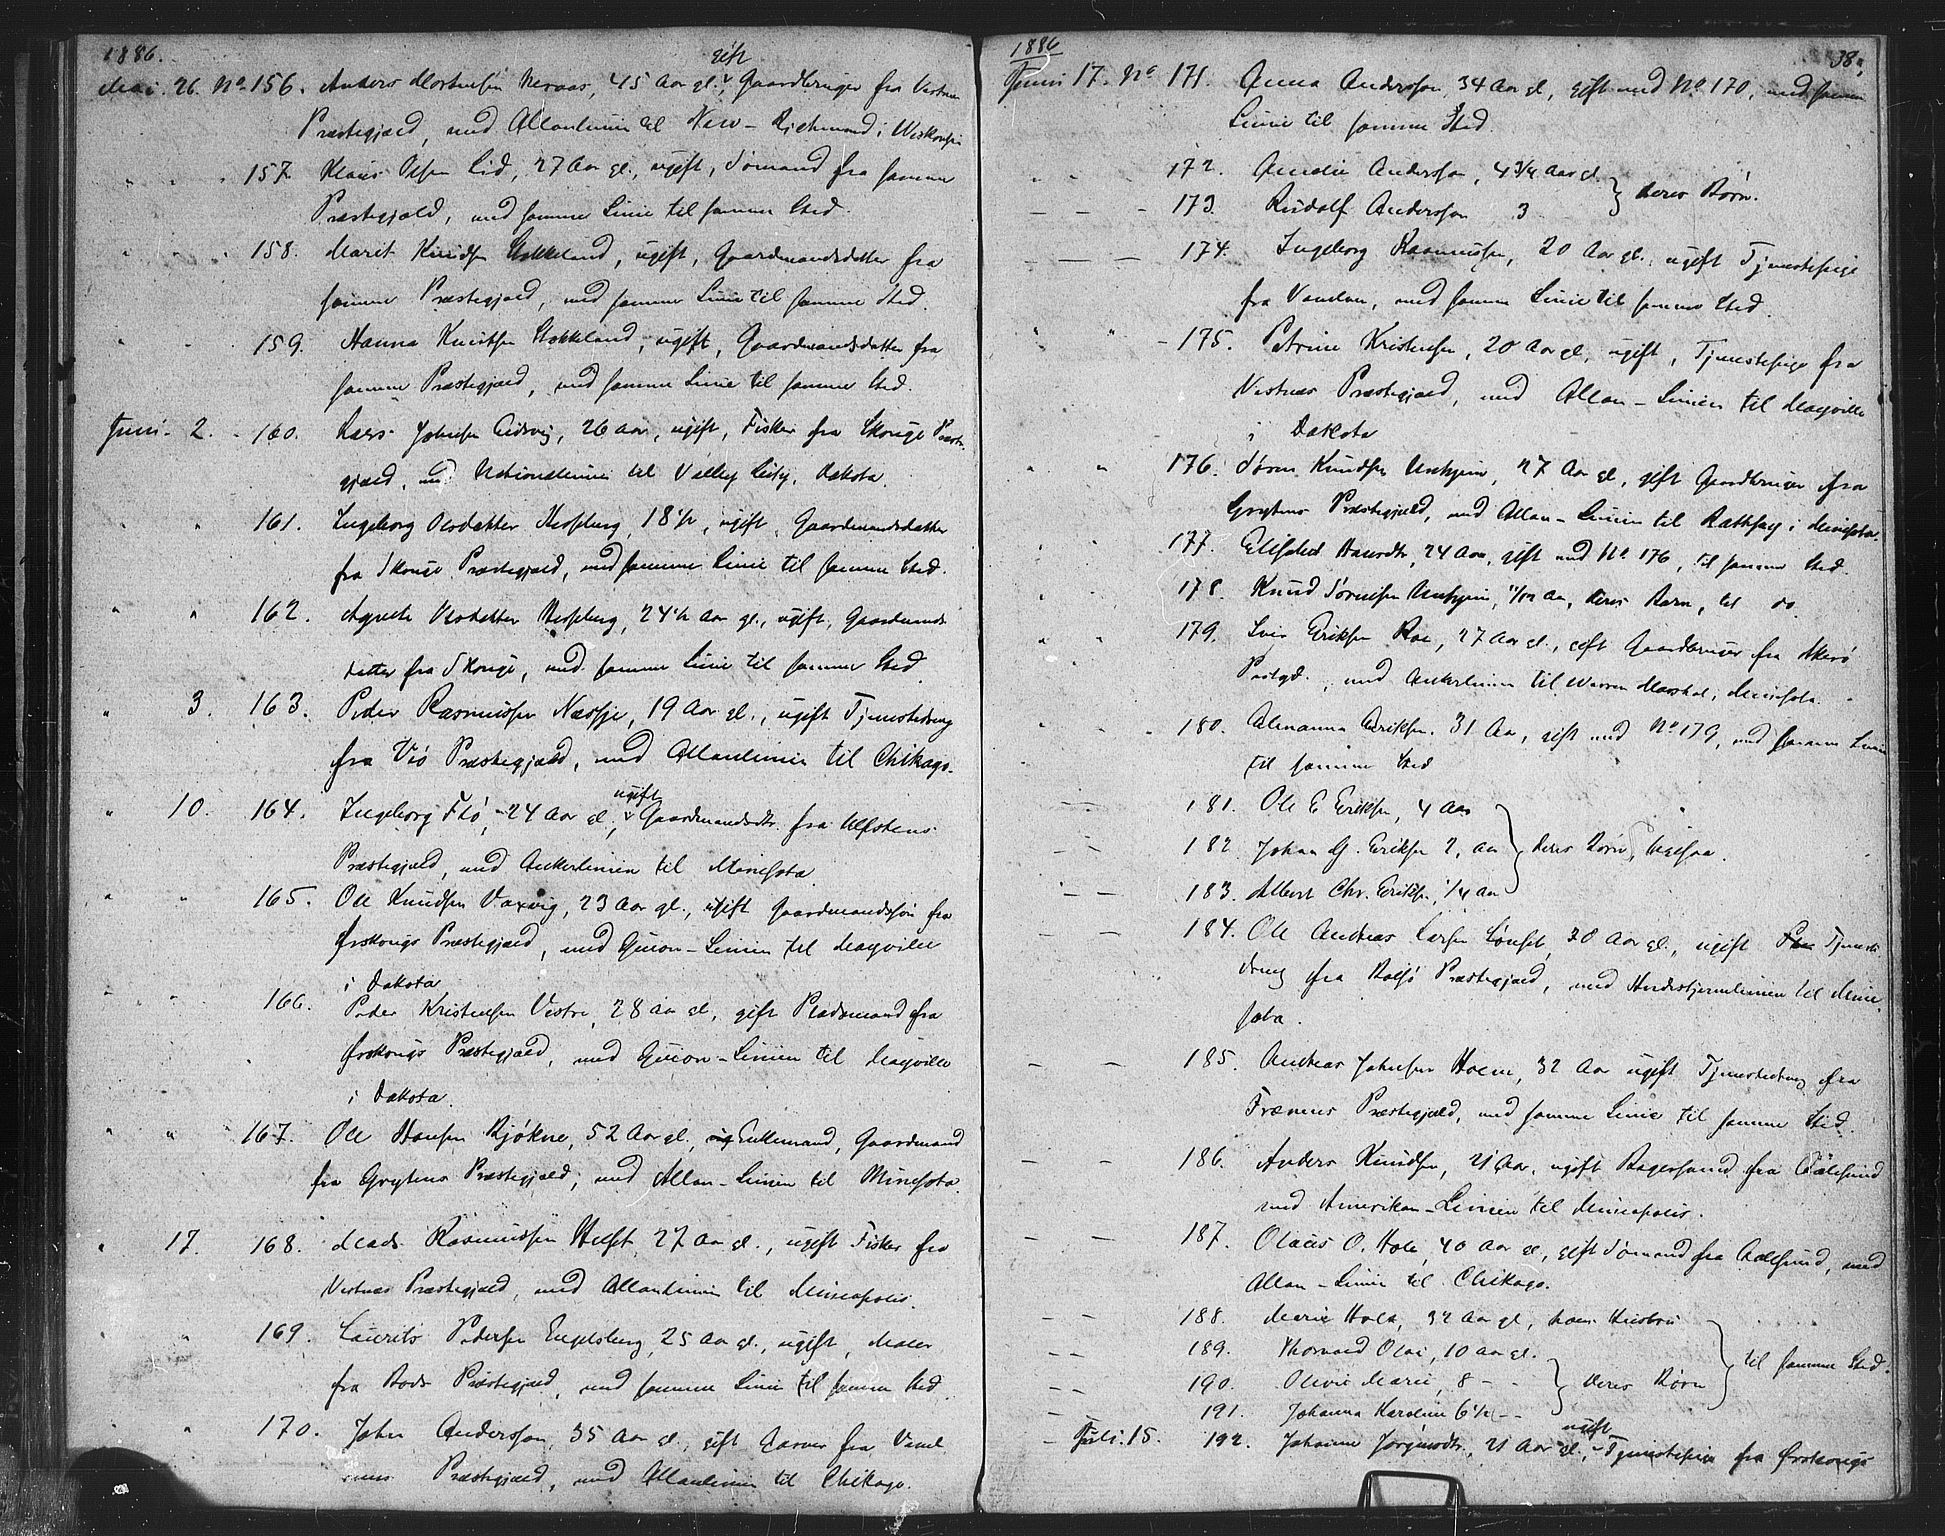 1886.
gift
Mai. 26. No. 156. Anders Mortensen Neraas, 45 Aar gl., Gaardbruger fra Vestnes
Præstegjæld, med Allanlinien til New-Richmond i Wiskonsin
" " " 157. Klaus Olsen Lid, 27 Aar gl., ugift, Sømand fra samme
Præstegjæld, med samme Linie til samme Sted.
" " 158. Maret Knudsen Stokkeland, ugift, Gaardmandsdatter fra
samme Præstegjæld, med samme Linie til samme Sted.
" " " 159. Hanna Knudsen Stokkeland, ugift, Gaardmandsdatter fra
samme Præstegjæld, med samme Linie til samme Sted.
Juni - 2. - 160. Lars Johnsen Eidsvig, 26 Aar, ugift, Fisker fra Skouge Præste-
gjæld, med Nationallinien til Valley City, Dakota.
" " 161. Ingeborg Olsdatter 18 1/2, ugift, Gaardmandsdatter
fra Skouge Præstegjæld, med samme Linie til samme Sted.
" " 162. Agnete Olsdatter 24 1/2 Aar gl., ugift, Gaardmands
datter fra Skouge, med samme Linie til samme Sted
" 3. 163. Peder Rasmussen Næsje, 19 Aar gl., ugift Tjenestedreng
fra Vø Præstegjæld, med Allanlinien til Chikago.
ugift
" 10. 164. Ingeborg Flø, 24 Aar gl., Gaardmandsdtr. fra Ulfstens
Præstegjæld, med Ankerlinien til Minesota
" " 165. Ole Knudsen Vaxvig, 23 Aar gl., ugift Gaardmandssøn fra
Ørskougs Præstegjæld, med Guion-Linien til Mayville
i Dakota
" " " 166. Peder Kristensen Vestre, 28 Aar gl., gift Pladsmand fra
Ørskougs Præstegjæld, med Guion-Linien til Mayville
i Dakota.
" " 167. Ole Hansen Bjøkne, 52 Aar gl., Enkemand, Gaardmand
fra Grytens Præstegjæld, med Allan-Linien til Minesota.
" 17. 168. Mads Rasmussen Helset, 27 Aar gl., ugift Fisker fra
Vestnæs Præstegjæld, med Allanlinien til Mineapolis.
" " 169. Laurits Pedersen Engelsberg, 25 Aar gl., ugift, Maler
fra Bods Præstegjæld, med samme Linie til samme Sted
" 170. John Andersson, 35 Aar gl., gift Garver fra
Præstegjæld, med Allanlinien til Chikago.
1886
38.
Juni 17. No 171. Anna Andersson, 34 Aar gl, gift med No 170, med samme
Linie til samme Sted.
" " " 172. Amalie Andersson, 4 3/4 Aar gl. } deres Børn.
— — - 173. Rudolf Andersson 3
— — — 174. Ingeborg Rasmussen, 20 Aar gl., ugift Tjenestepige
fra med samme Linie til samme Sted.
" " - 175. Petrine Kristensen, 20 Aar gl., ugift, Tjenestepige fra
Vestnæs Præstegjæld, med Allan-Linien til Mayville
i Dakota
" " 176. Søren Knudsen Unhjem, 27 Aar gl., gift Gaardbruger fra
Grytens Præstegjæld, med Allan-Linien til Rothsay i Minesota.
" " 177. Elisabet Hansdtr, 24 Aar, gift med No 176, til samme Sted.
" " 178. Knud Sørensen Unhjem, Aar, deres Barn, til do
" " 179. Iver Eriksen Roe, 27 Aar gl., gift Gaardbruger fra Akerø
med Ankerlinien til Warren Marshal, Minesota.
" " 180. Almanna Eriksen. 31 Aar, gift med No 179, med samme Linie
til samme Sted
— — 181. Ole E Eriksen, 4 Aar
— — 182. Johan G. Eriksen 2, aar } deres Børn, ligesaa.
— — 183. Albert Chr. Eriksen, 1/4 aar
— — 184. Ole Andreas Larsen Lønset, 20 Aar gl., ugift Tjeneste
dreng fra Bolsø Præstegjæld, med Hvidestjernelinien til Mine
sota.
— — 185. Andreas Johnsen Holen, 32 Aar ugift Tjenestedreng fra
Frænens Præstegjæld, med samme Linie til samme Sted.
— — 186. Anders Knudsen, 21 Aar, ugift Bagersvend fra Aalesund
med Amerikan-Linien til Mineapolis.
— — 187. Olaus O. Hole, 40 Aar gl., gift Sømand fra Aalesund, med
Allan-Linie til Chikago.
— — 188. Marie Hole, 32 Aar gl, hans Hustru
— — 189. Thorvald Olai, 10 Aar gl. } til samme Sted.
— — 190. Olivie Marie, 8 - - } deres Børn
— 191. Johanna Karoline 6 1/2 - -
ugift
— Juli. 15. 192. Johanne Jørgensdtr., 21 Aar gl., Tjenestepige fra Ørskougs